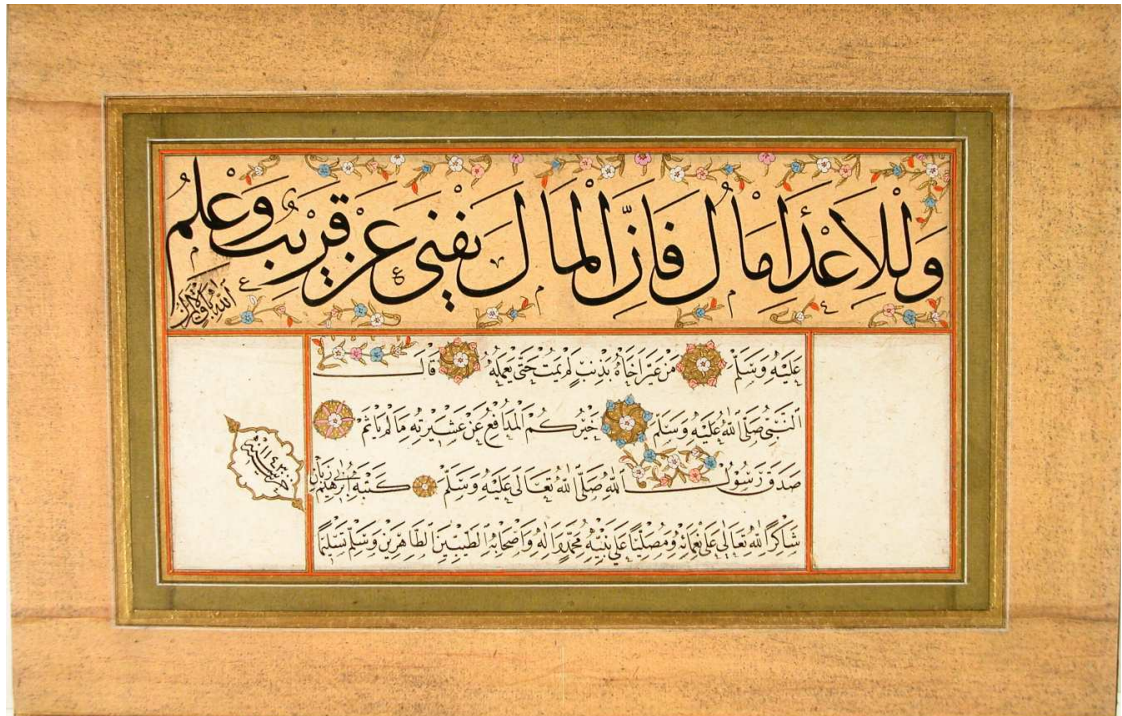 وَلِلْاَعْدَا مَالٌ فَاِنَّ الْمَالَ يَفْنٰى عَنْ قَرِيْبٍ وَعِلْمُ
اللّٰه باق لا يزال
عَلَيْهِ وَسَلَّمَ مَنْ عَيَّرَ اَخَاهُ بِذَنْبٍ لَمْ يَمُتْ حَتّٰى يَعْمَلَهُ قَالَ
اَلنَّبِيُّ صَلَّى اللّٰهُ عَلَيْهِ وَسَلَّمَ خَيْرُكُمُ الْمُدَافِعُ عَنْ عَشِيْرَتِهِ مَا لَمْ يَاْثَمْ
صَدَقَ رَسُوْلُ اللّٰهِ صَلَّى اللّٰهُ تَعَالٰى عَلَيْهِ وَسَلَّمَ كَتَبَهُ اِبْرٰهِيْمُ
شَاكِرًا لِلّٰهِ تَعَالٰى عَلٰى نَعْمَائِهِ وَمُصَلِّيًا عَلٰى نَبِيِّهِ مُحَمَّدٍ وَاٰلِهِ وَاَصْحَابِهِ الطَّيِّبِيْنَ الطَّاهِرِيْنَ وَسَلَّمَ تَسْلِيْمًا